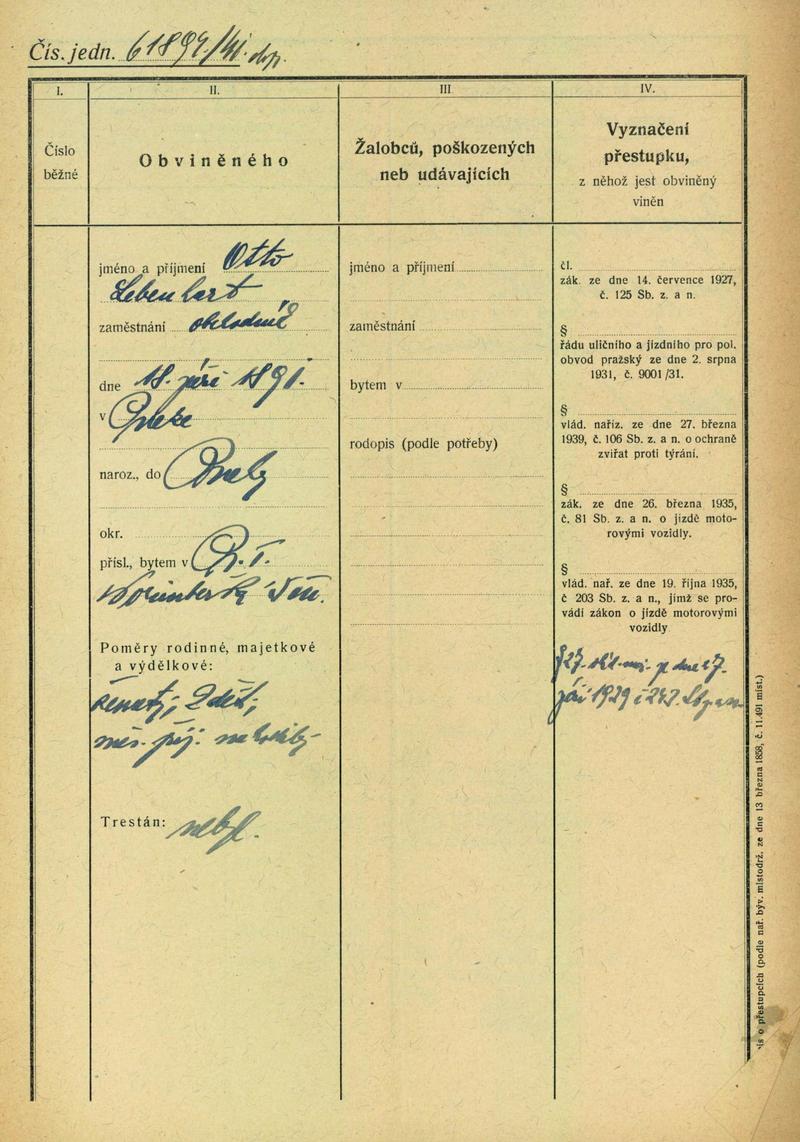 Čís. jedn. 61899/41.
I.
Číslo
běžné
II.
Obviněného
III
Žalobců, poškozených
neb udávajících
IV.
Vyznačení
přestupku,
z něhož jest obviněný
viněn
jméno a příjmení Otto
zaměstnání
dne 18. září 1891.
v
naroz., do
okr.
přísl., bytem v
Poměry rodinné, majetkové
a výdělkové:
ženatý, 2 děti,
Trestán: nebyl.
jméno a příjmení
zaměstnání
bytem v
rodopis (podle potřeby)
čl.
zák. ze dne 14. července 1927,
č. 125 Sb. z. a n.
§
řádu uličního a jízdního pro pol.
obvod pražský ze dne 2. srpna
1931, č. 9001/31.
§
vlád. naříz. ze dne 27. března
1939, č. 106 Sb. z. a n. o ochraně
zvířat proti týrání.
§
zák. ze dne 26. března 1935,
č. 81 Sb. z. a n. o jízdě moto-
rovými vozidly.
§
vlád. nař. ze dne 19. října 1935,
č 203 Sb. z. a n., jímž se pro-
vádí zákon o jízdě motorovými
vozidly
ze dne
září 1939 č
is o přestupcích (podle nař. býv. místodrž. ze dne 13 března 1858, č. 11.491 míst.)